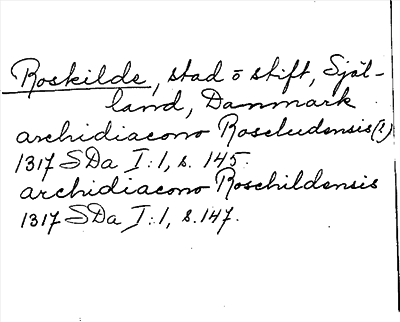 Roskilde, stad o stift, Själ-
land, Danmark
archidiacono Roscludensis (!)
1317 SDa I:1, s. 145.
archidiacono Roschildensis
1317 SDa I:1, s. 147.